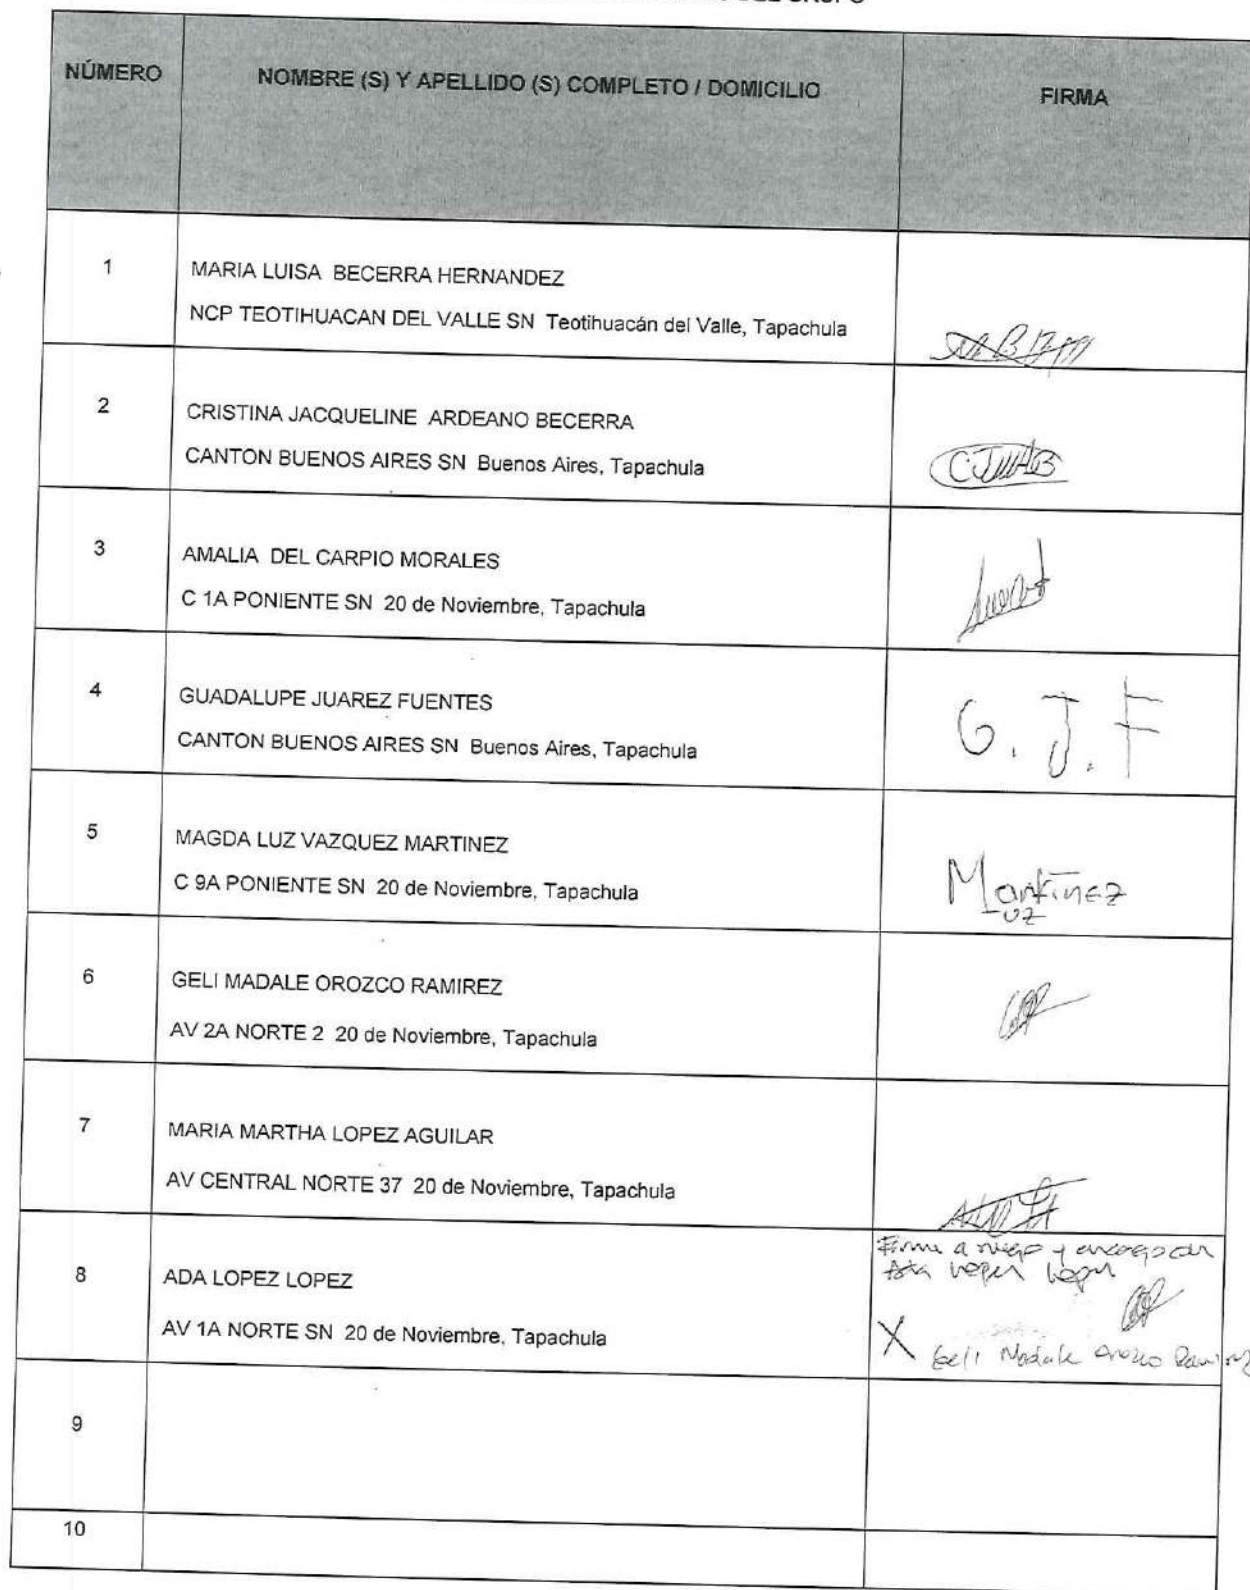 DEL GRUPO
NÚMERO
NOMBRE (S) Y APELLIDO (S) COMPLETO / DOMICILIO
FIRMA
1
MARIA LUISA BECERRA HERNANDEZ
NCP TEOTIHUACAN DEL VALLE SN Teotihuacán del Valle, Tapachula
2
CRISTINA JACQUELINE ARDEANO BECERRA
CANTON BUENOS AIRES SN Buenos Aires, Tapachula
3
AMALIA DEL CARPIO MORALES
C 1A PONIENTE SN 20 de Noviembre, Tapachula
4
GUADALUPE JUAREZ FUENTES
CANTON BUENOS AIRES SN Buenos Aires, Tapachula
G. J. F
5
MAGDA LUZ VAZQUEZ MARTINEZ
C 9A PONIENTE SN 20 de Noviembre, Tapachula
Martinez
uz
6
GELI MADALE OROZCO RAMIREZ
AV 2A NORTE 2 20 de Noviembre, Tapachula
7
MARIA MARTHA LOPEZ AGUILAR
AV CENTRAL NORTE 37 20 de Noviembre, Tapachula
8
ADA LOPEZ LOPEZ
AV 1A NORTE SN 20 de Noviembre, Tapachula
a ruego y
X
Geli Madale Orozco Ramirez
9
10